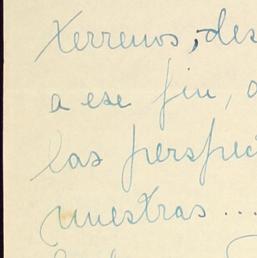 terrenos, des
a ese fin, a
las perspec
nuestras ...